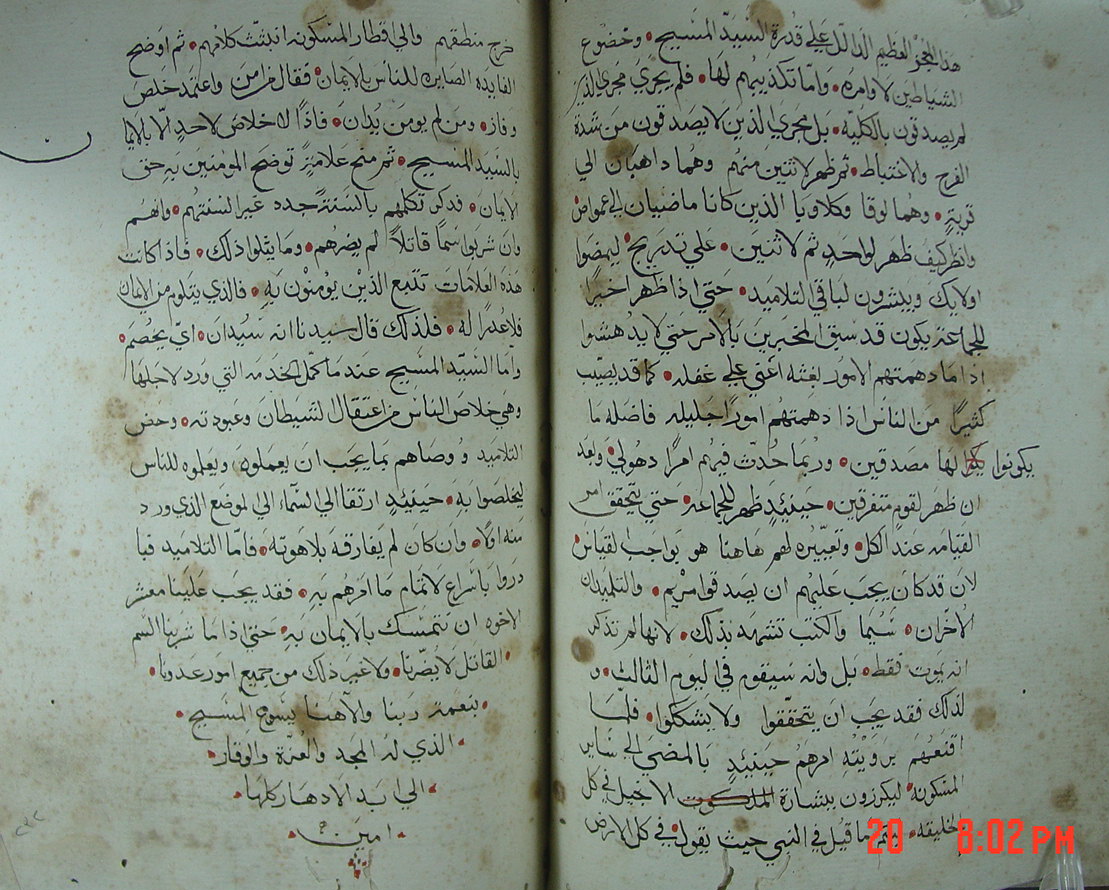 هذا المعجز العظيم الدال على قدرة السيد المسيح • وخضوع
الشياطين لاوامره • واما تكذيبهم لها • فلم يجري مجري الذين
لم يصدقون بالكليه • بل مجري الذين لا يصدقون من شدة
الفرح والاغتباط • ثم ظهر لاثنين منهم وهما ذاهبان الي
قرية • وهما لوقا وكلاوبا الذين كانا ماضيان الي عمواص
وانظر كيف ظهر لواحدٍ ثم لاثنين • علي تدريج • ليمضوا
اولايك ويبشرون لباقي التلاميد • حتي اذا ظهر اخيرًا
للجماعه يكون قد سبق المخبرين بالامر حتي لا يدهشوا
اذا ما دهمتهم الامور بغته اعني علي غفله • كما قد يصيب
كثيرًا من الناس اذا دهمتهم امورًا جليله فاضله ما
يكونوا لها مصدقين • وربما حدث فيهم امرًا دهولي • وبعد
ان ظهر لقوم متفرقين • حينيدٍ ظهر للجماعه • حتي يتحقق امر
القيامه عند الكل • وتعييره لهم هاهنا هو بواجب القياس
لان قد كان يجب عليهم ان يصدقوا مريم • والتلميدان
الاخران • سيما والكتب تشهد بذلك • لانها لم تذكر
انه يموت فقط • بل وانه سيقوم في اليوم الثالث • و
لذلك فقد يجب ان يتحققوا ولا يشككوا • فلما
اقنعهم برويته امرهم حينيدٍ بالمضي الي ساير
المسكونه • ليكرزون ببشارة الملكوت الانجيل في كل
الخليقه • ليتم ما قيل في النبي حيث يقول • في كل الارض
خرج منطقهم والي اقطار المسكونه انبثت كلامهم • ثم اوضح
الفايده الصايره للناس بالايمان • فقال من امن واعتمد خلص
وفاز • ومن لم يومن يدان • فاذًا لا خلاص لاحدٍ الا بالايما
بالسيد المسيح • ثم منح علامةٍ توضح المومنين به حق
الايمان • فدكر تكلمهم بالسنةً جدد غير السنتهم • وانهم
وان شربوا سمًا قاتلاً لم يضرهم • وما يتلوا ذلك • فاذا كانت
هذه العلامات تتبع الذين يومنون به • فالذي يتلوم من الايمان
فلا عذرًا له • فلذلك قال سيدنا انه سيُدان • اي يخصم •
واما السيد المسيح عند ما كمل الخدمه التي ورد لاجلها
وهي خلاص الناس من اعتقال الشيطان وعبودته • وحض
التلاميد ووصاهم بما يجب ان يعملوه ويعلموه للناس
ليخلصوا به • حينيدٍ ارتقا الي السماء الي الموضع الذي ورد
منه اولاً • وان كان لم يفارقه بلاهوته • فاما التلاميد فبا
دروا باسراع لاتمام ما امرهم به • فقد يجب علينا معشر
الاخوه ان نتمسك بالايمان به • حتي اذا ما شربنا السم
القاتل لا يضرنا • ولا غير ذلك من جميع امور عدونا •
• بنعمة ربنا والاهنا يسوع المسيح •
• الذي له المجد والعزة والوقار •
• الي ابد الادهار كلها •
• امين •
20 8:02 PM